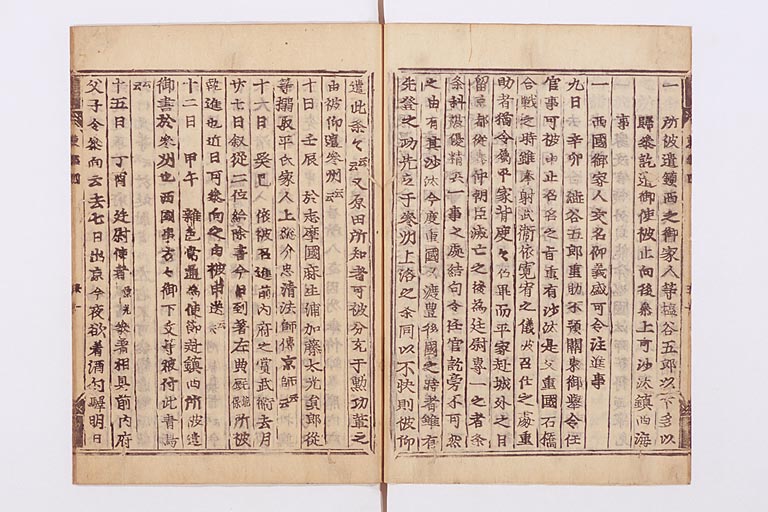 一 所被遣鎮西之御家人等澁谷五郎以下多以
歸參訖遣御使被止向後參上可沙汰鎮西海
事
一 西國御家人交名仰義盛可令注進事
九日 辛卯 澁谷五郎重助不預關東御擧令任
官事可被申止召名之旨重有沙汰是父重國石橋
合戰之時雖奉射武衛依寛宥之儀被召仕之處重
助者猶令属平家背度々召畢而平家赴城外之日
留京都從義仲朝臣滅亡之後為廷尉專一之者条
条科被優精兵一事之處結句令任官訖旁不可然
之由有其沙汰今度重國又渡豐後國之時者雖有
先登之功先立于參州上洛之条同以不快則被仰
遣此条々云云又原田所知者可被分充于勲功輩之
由被仰遣參州云云
十日 壬辰 於志摩國麻生浦加藤太光員郎從
等搦取平氏家人上総介忠清法師傳京師云云
十六日 癸巳 依被召進前內府之賞武衛去月
廿七日叙從二位給除書今日到著左典厩能保所被
執進也近日可參向之由被申送云云
十二日 甲午 雜色常通為使節赴鎮西所被遣
御書於參州也西國事方々御下文等被付此青鳥
云云
十五日 丁酉 廷尉使者景光參著相具前內府
父子令參向云去七日出京今夜欲着酒匂驛明日